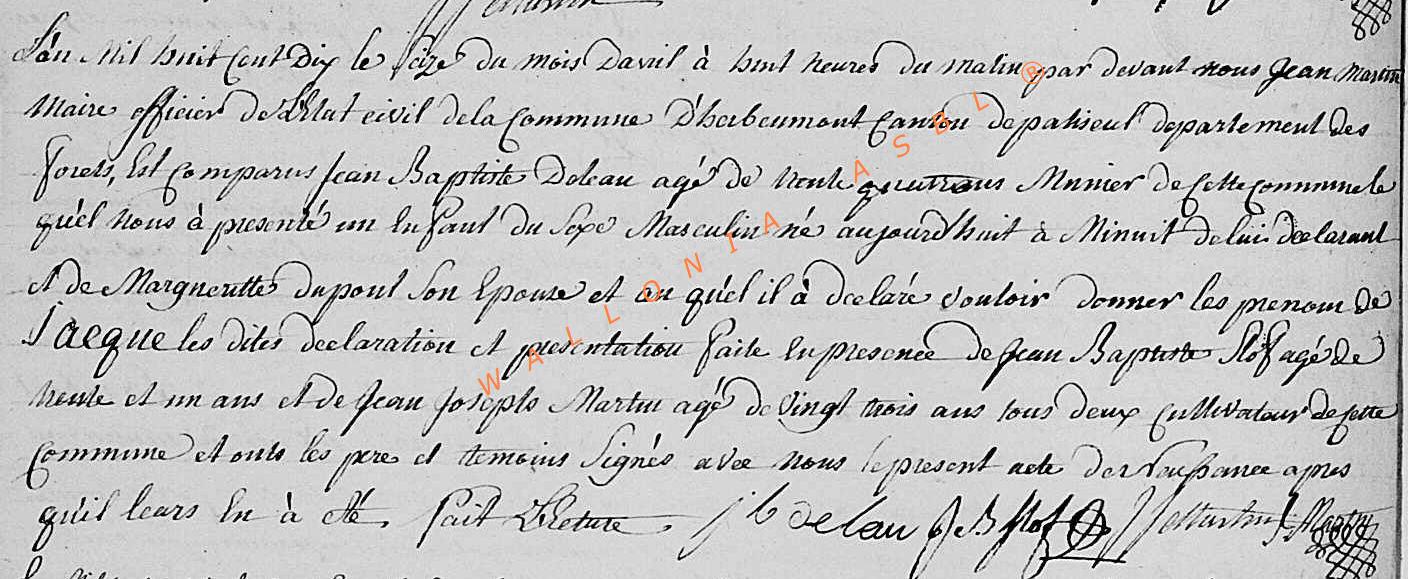 L'an Mil huit Cent Dix le seize du mois Davril à huit heures du matin par devant nous Jean Martin
Maire officier de L'Etat civil de la Commune D'herbeumont Canton de paliseul departement des
forets, Est Comparus Jean Baptiste Deleau agé de trente quatre ans Munier de Cette Commune le
quel nous à presenté un Enfant du Sexe Masculin né aujourd'huit à Minuit de lui declarant
et de Margueritte dupont Son Epouse et au quel il à declaré vouloir donner les prenom de
Jacque les dites declaration et presentation faite En presence de Jean Baptiste Slof agé de
trente et un ans et de Jean Joseph Martin agé de vingt trois ans tous deux Cultivateur de Cette
Commune et onts les pere et temoins Signés avec nous le present acte de naissance apres
qu'il leurs En à eté fait Lecture. j b delau J B Slof JJ Martin J Martin
WALLONIA ASBL ®